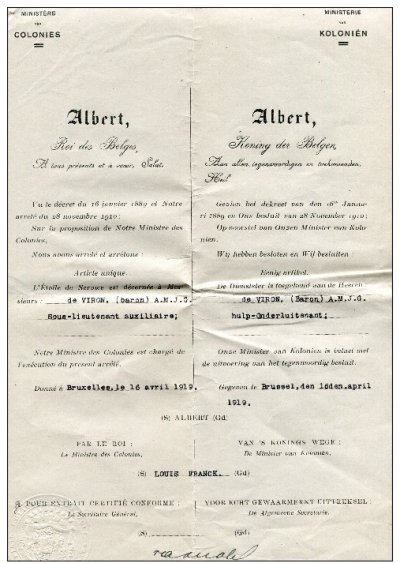 MINISTÈRE
DES
COLONIES
Albert,
Roi des Belges,
A tous présents et à venir, Salut.
Vu le décret du 16 janvier 1889 et Notre
arrêté du 28 novembre 1910;
Sur la proposition de Notre Ministre des
Colonies,
Nous avons arrêté et arrêtons:
Article unique.
L'Étoile de Service est décernée à Mes-
sieurs: de VIRON, (baron) A.M.J.G.
Sous-lieutenant auxiliaire;
Notre Ministre des Colonies est chargé de
l'exécution du présent arrêté.
Donné à Bruxelles, le 16 avril 1919.
MINISTERIE
VAN
KOLONIËN
Albert,
Koning der Belgen,
Aan allen, tegenwoordigen en toekomenden,
Heil.
Gezien het dekreet van den 16n Janua-
ri 1889 en Ons besluit van 28 November 1910;
Op voorstel van Onzen Minister van Kolo-
niën,
Wij hebben besloten en Wij besluiten
Eenig artikel.
De Dienstster is toegekend aan de Heeren:
de VIRON, (Baron) A.M.J.G.
hulp-Onderluitenant;
Onze Minister van Koloniën is belast met
de uitvoering van het tegenwoordig besluit.
Gegeven te Brussel, den 16den. april
1919.
(S) ALBERT (Gd)
PAR LE ROI:
Le Ministre des Colonies,
VAN 'S KONINGS WEGE:
De Minister van Koloniën,
(S) LOUIS FRANCK. (Gd)
POUR EXTRAIT CERTIFIÉ CONFORME:
Le Secrétaire Général,
VOOR KORT GEWAARMERKT UITTREKSEL:
De Algemeene Secretaris,
(S) (Gd)